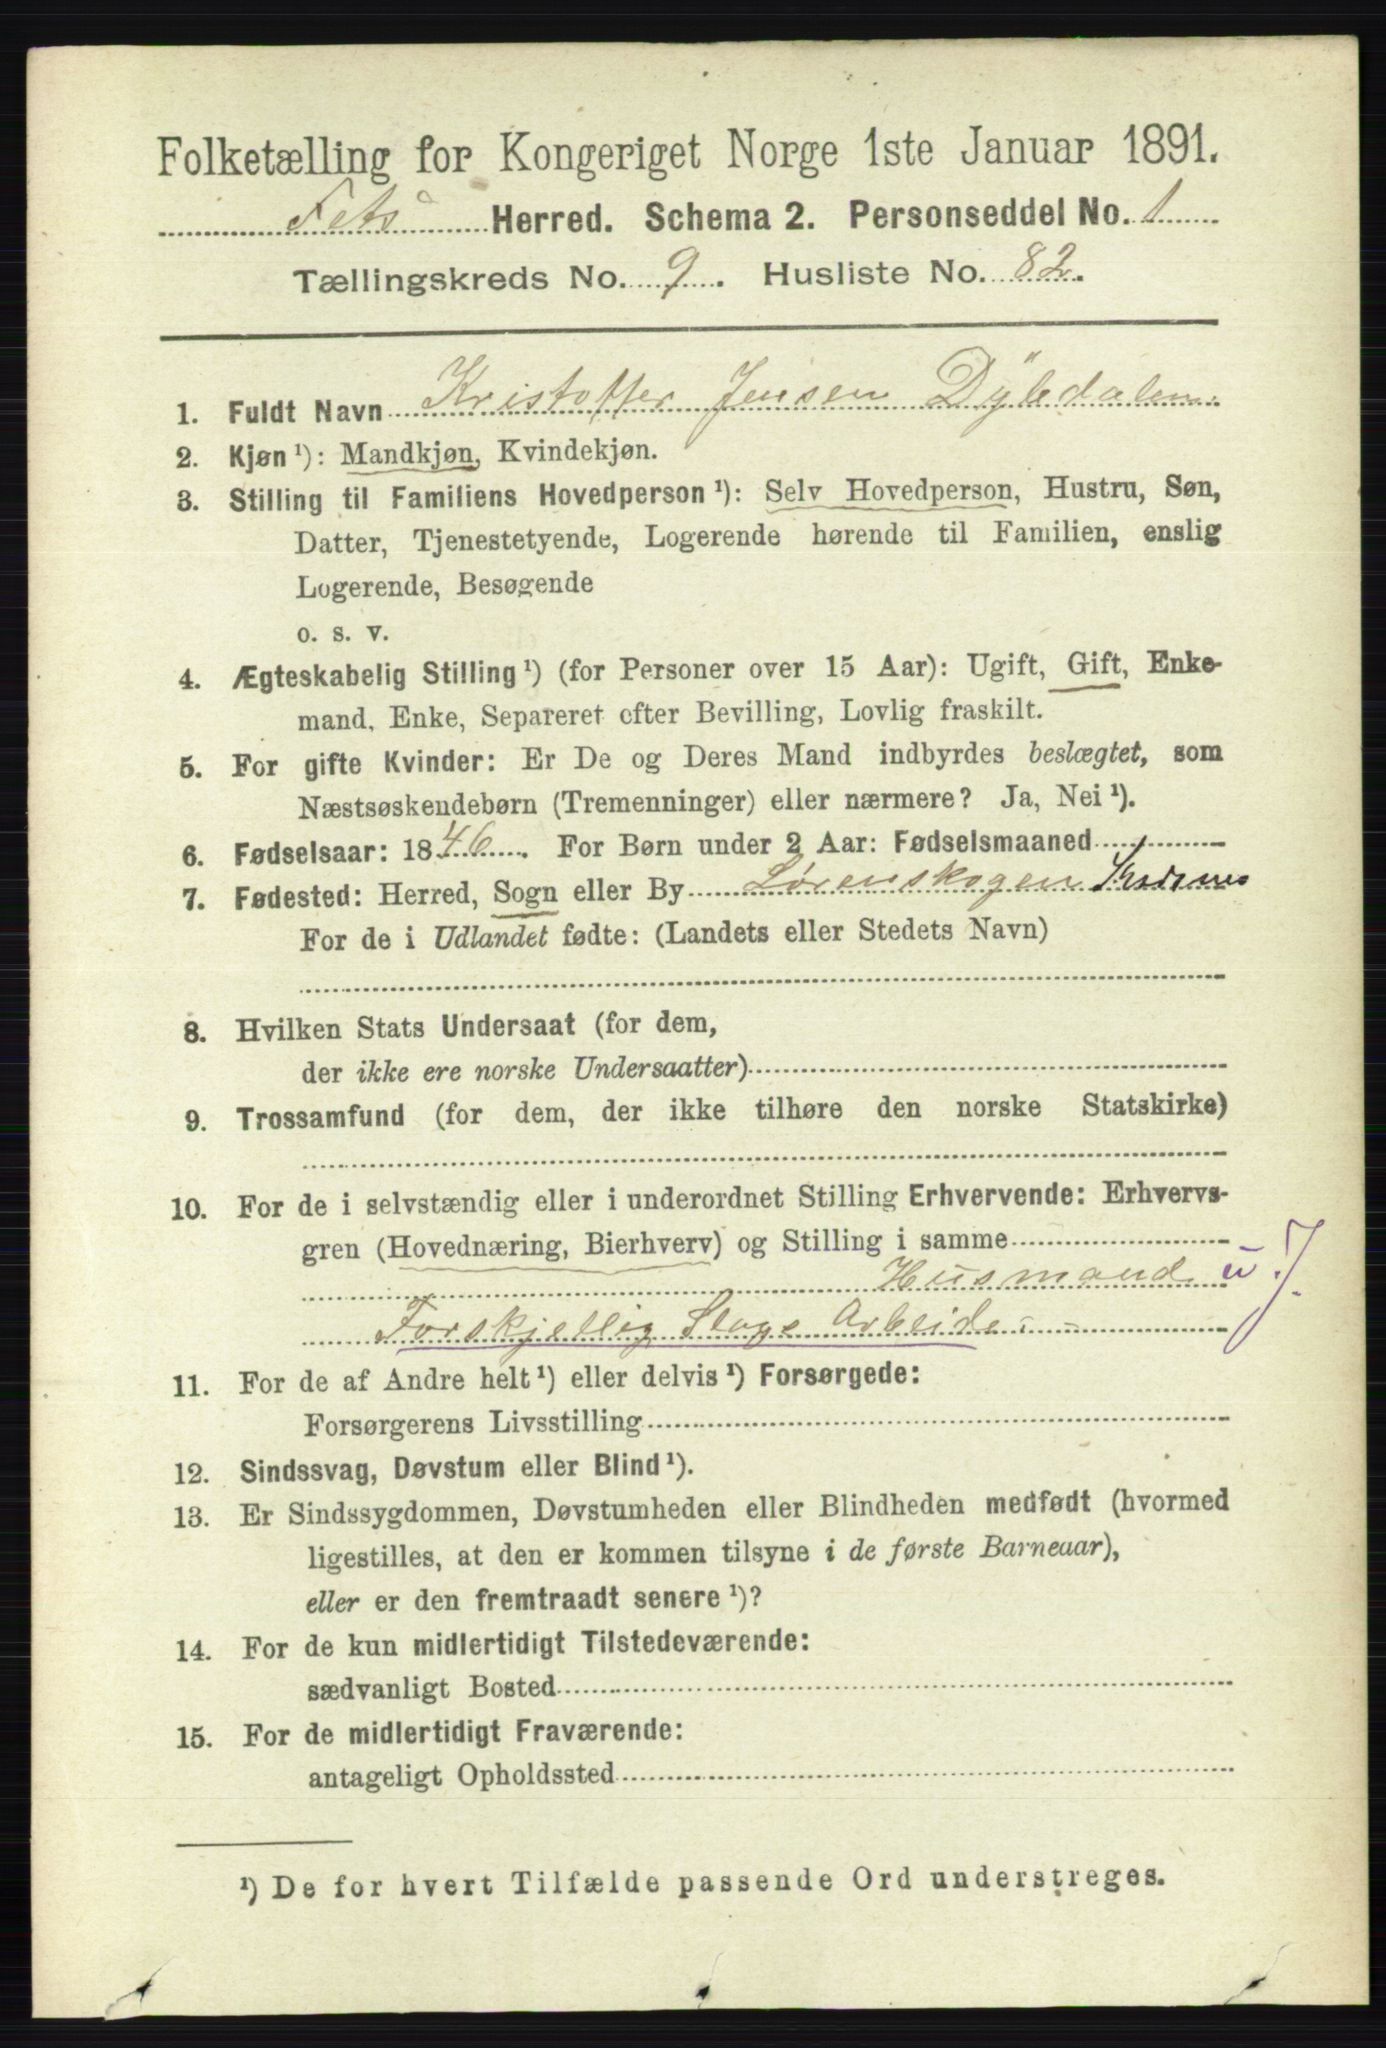 Folketælling for Kongeriget Norge 1ste Januar 1891.
Fets Herred. Schema 2. Personseddel No. 1
Tællingskreds No. 9. Husliste No. 82.
1. Fuldt Navn Kristoffer Jensen Dyledalen
2. Kjøn ¹): Mandkjøn, Kvindekjøn.
3. Stilling til Familiens Hovedperson ¹): Selv Hovedperson, Hustru, Søn,
Datter, Tjenestetyende, Logerende hørende til Familien, enslig
Logerende, Besøgende
o. s. v.
4. Ægteskabelig Stilling ¹) (for Personer over 15 Aar): Ugift, Gift, Enke-
mand, Enke, Separeret efter Bevilling, Lovlig fraskilt.
5. For gifte Kvinder: Er De og Deres Mand indbyrdes beslægtet, som
Næstsøskendebørn (Tremenninger) eller nærmere? Ja, Nei ¹).
6. Fødselsaar: 1846. For Børn under 2 Aar: Fødselsmaaned
7. Fødested: Herred, Sogn eller By Lørenskogen
For de i Udlandet fødte: (Landets eller Stedets Navn)
8. Hvilken Stats Undersaat (for dem,
der ikke ere norske Undersaatter)
9. Trossamfund (for dem, der ikke tilhøre den norske Statskirke)
10. For de i selvstændig eller i underordnet Stilling Erhvervende: Erhvervs-
gren (Hovednæring, Bierhverv) og Stilling i samme
Husmand u. J.
Forskjellig Slags Arbeide
11. For de af Andre helt ¹) eller delvis ¹) Forsørgede:
Forsørgerens Livsstilling
12. Sindssvag, Døvstum eller Blind ¹).
13. Er Sindssygdommen, Døvstumheden eller Blindheden medfødt (hvormed
ligestilles, at den er kommen tilsyne i de første Barneaar),
eller er den fremtraadt senere ¹)?
14. For de kun midlertidigt Tilstedeværende:
sædvanligt Bosted
15. For de midlertidigt Fraværende:
antageligt Opholdssted
¹) De for hvert Tilfælde passende Ord understreges.